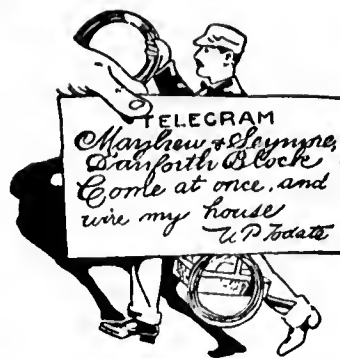 TELEGRAM
Mayhew & Seymore,
Danforth Block
Come at once, and
wire my house
U P Todate